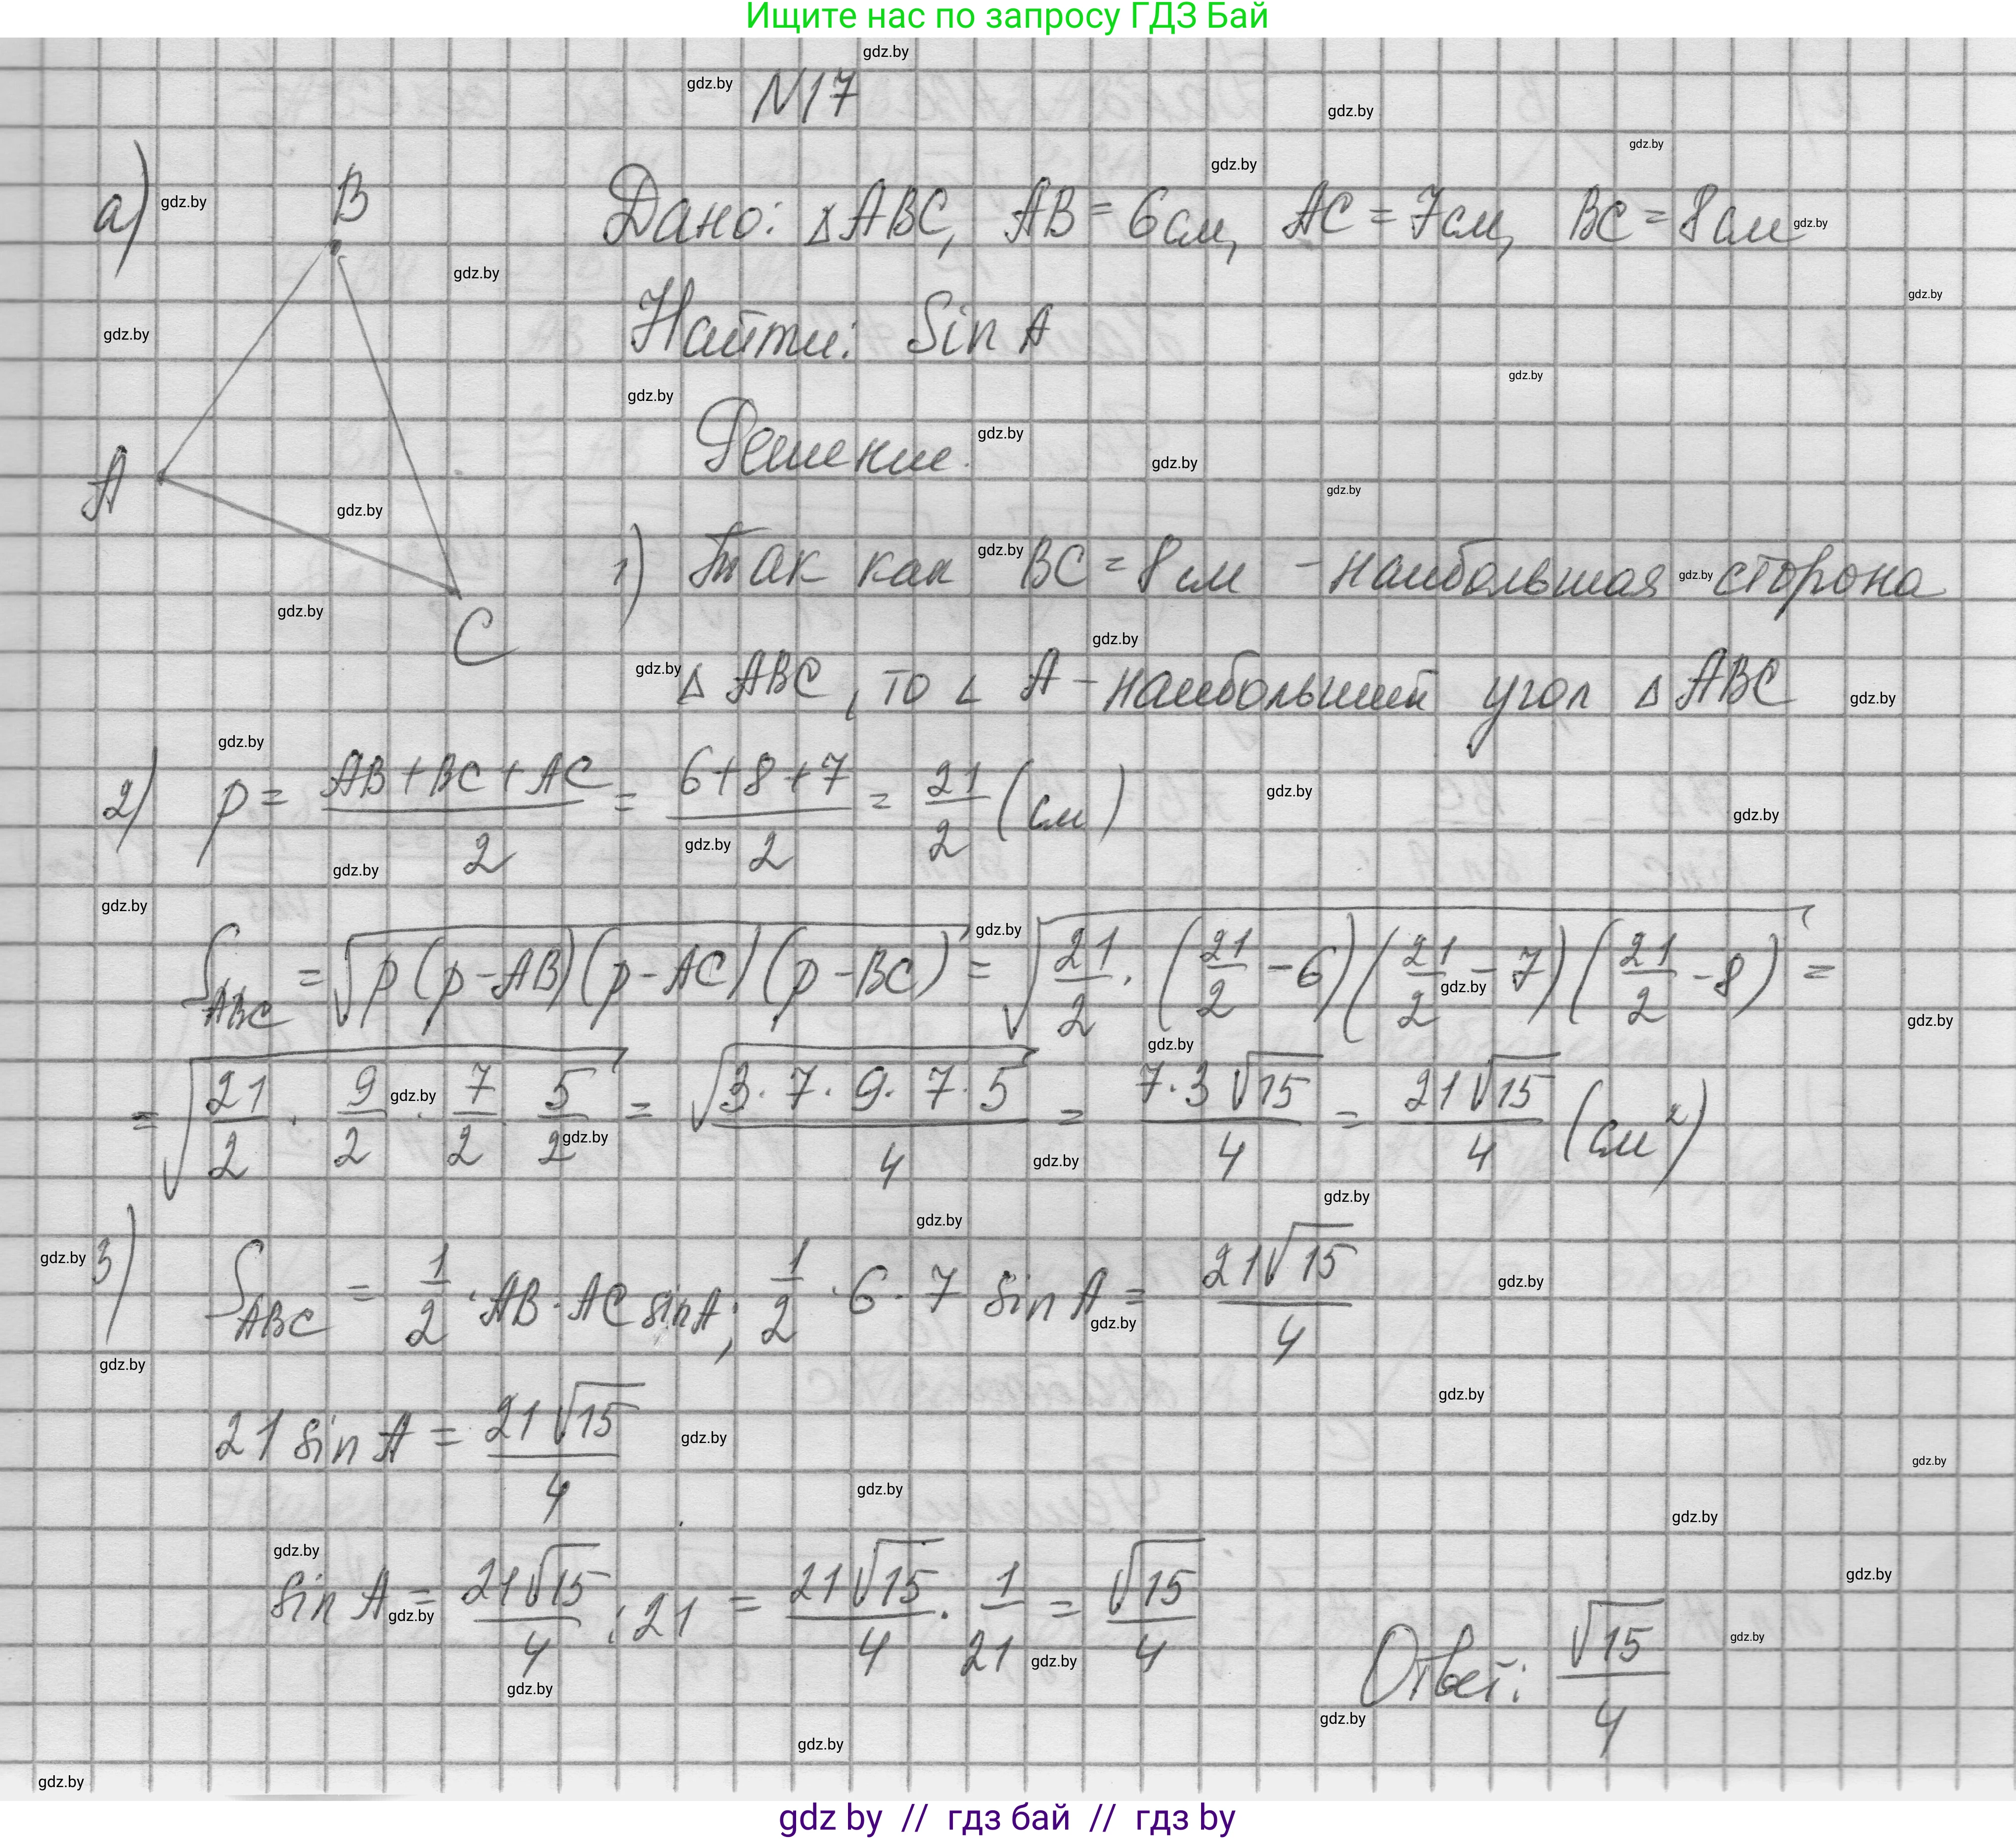 Ищите нас по запросу ГДЗ Бай
N17
а) B Дано: △ABC, AB = 6см, AC = 7см, BC = 8см
Найти: Sin A
Решение.
A
C
1) Так как BC = 8 см - наибольшая сторона
△ ABC, то ∠ A - наибольший угол △ ABC
2) p = (AB + BC + AC)/2 = (6+8+7)/2 = 21/2 (см)
S_ABC = √(p(p-AB)(p-AC)(p-BC)) = √(21/2 · (21/2 - 6)(21/2 - 7)(21/2 - 8)) =
= √(21/2 · 9/2 · 7/2 · 5/2) = √(3·7·9·7·5)/4 = 7·3√15/4 = 21√15/4 (см²)
3) S_ABC = 1/2 · AB · AC sin A; 1/2 · 6 · 7 sin A = 21√15/4
21 sin A = 21√15/4
sin A = 21√15/4 : 21 = 21√15/4 · 1/21 = √15/4
Ответ: √15/4
gdz by // гдз бай // гдз by